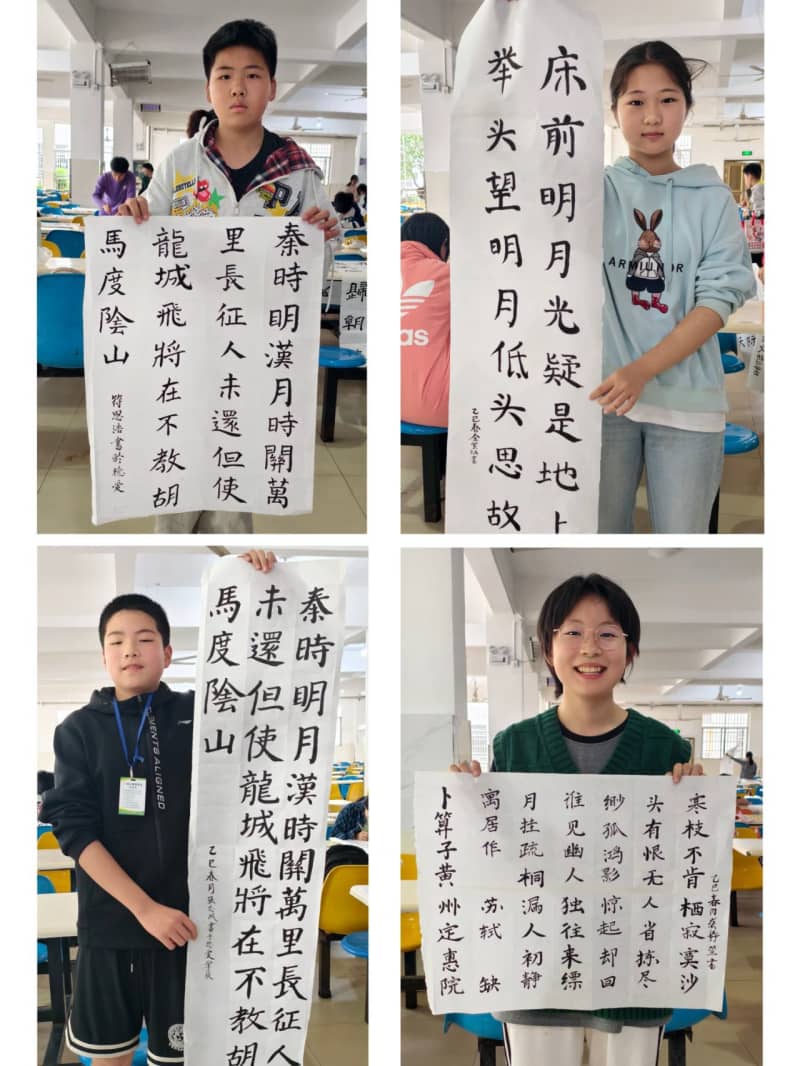 秦時明漢月時關萬
里長征人未還但使
龍城飛將在不教胡
馬度陰山
符思浩書於
歸朝
床前明月光疑是地上
举头望明月低头思故
乙巳春金书
ARMIUNOR
as
秦時明月漢時關萬里長征人
未還但使龍城飛將在不教胡
馬度陰山
乙巳春月張書于
EVENTS ALIGNED
卜算子黄州定惠院
寓居作 苏轼 缺
月挂疏桐漏人初静
谁见幽人独往来缥
缈孤鸿影惊起却回
头有恨无人省拣尽
寒枝不肯栖寂寞沙
乙巳春月书